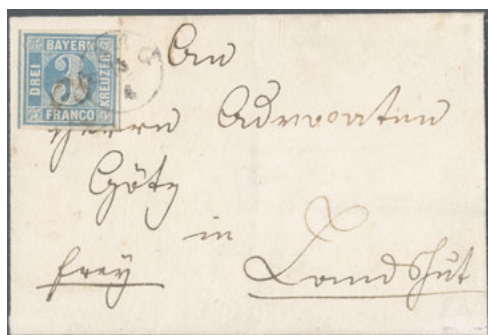 BAYERN
DREI
3
KREUZER
FRANCO
An
Herrn Advocaten
Götz
in
frey
Landshut